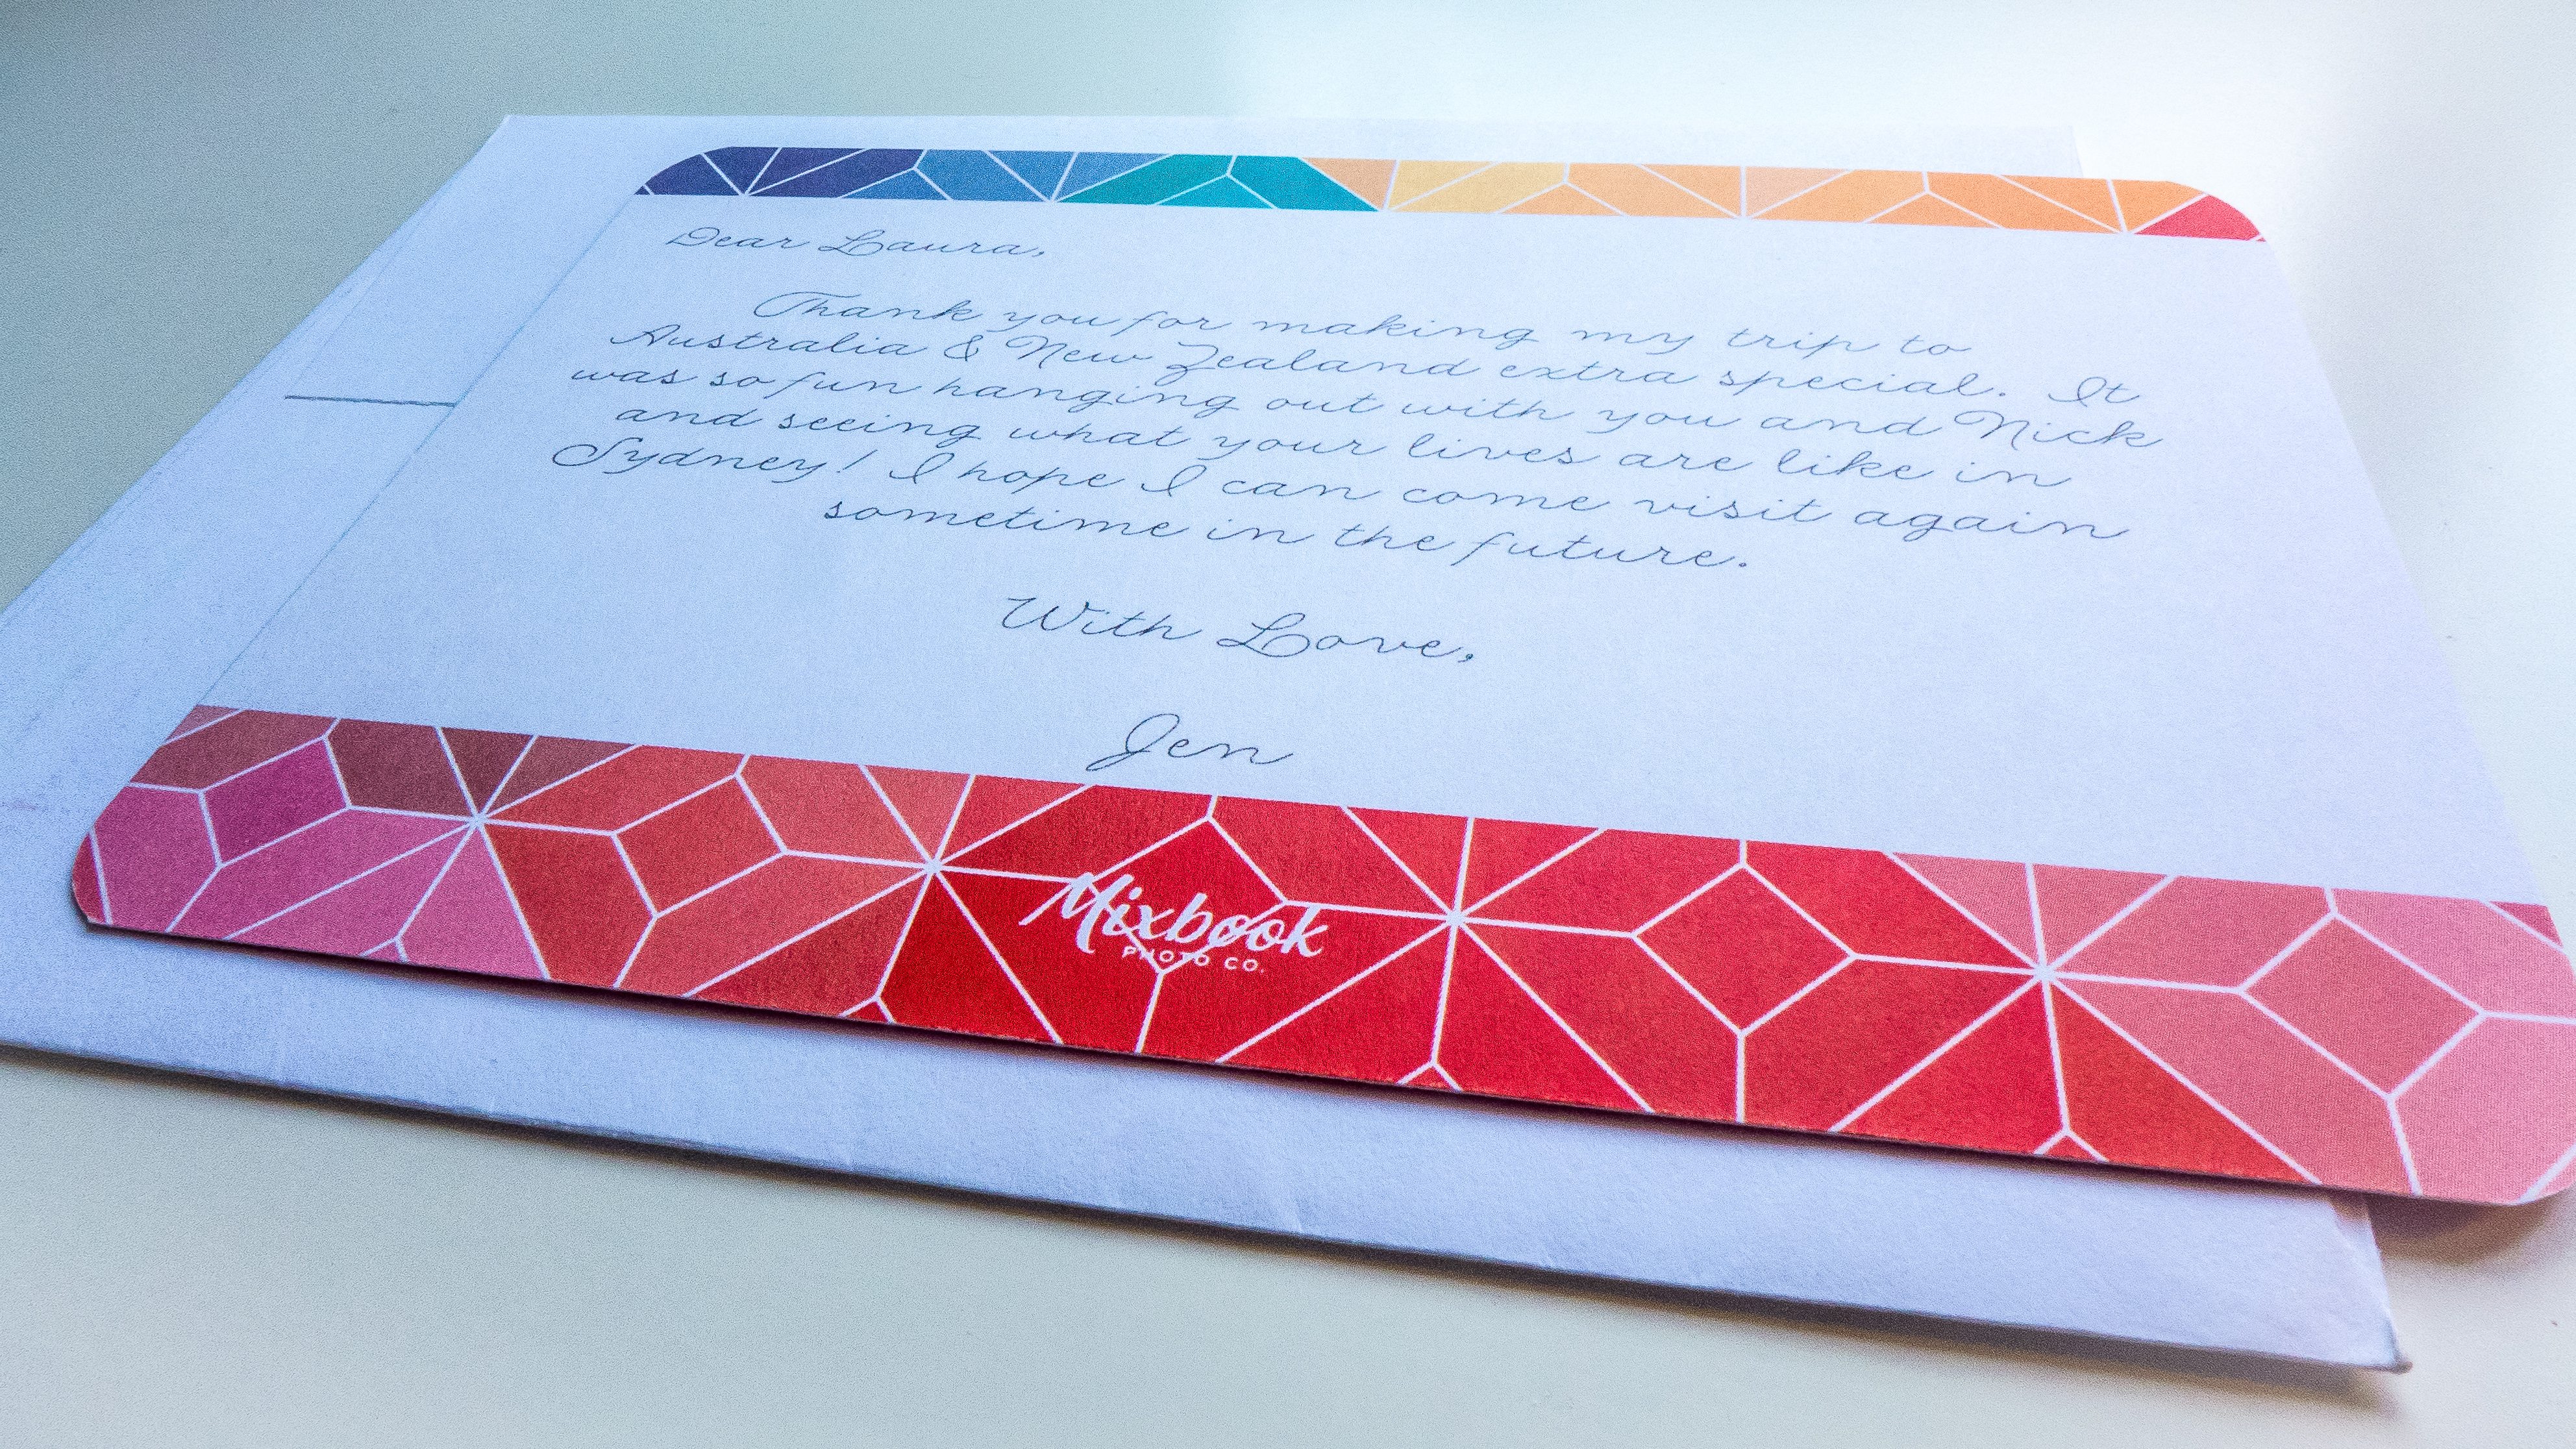 Dear Laura,
Thank you for making my trip to
Australia & New Zealand extra special. It
was so fun hanging out with you and Nick
and seeing what your lives are like in
Sydney! I hope I can come visit again
sometime in the future.
With Love,
Jen
Mixbook
PHOTO CO.